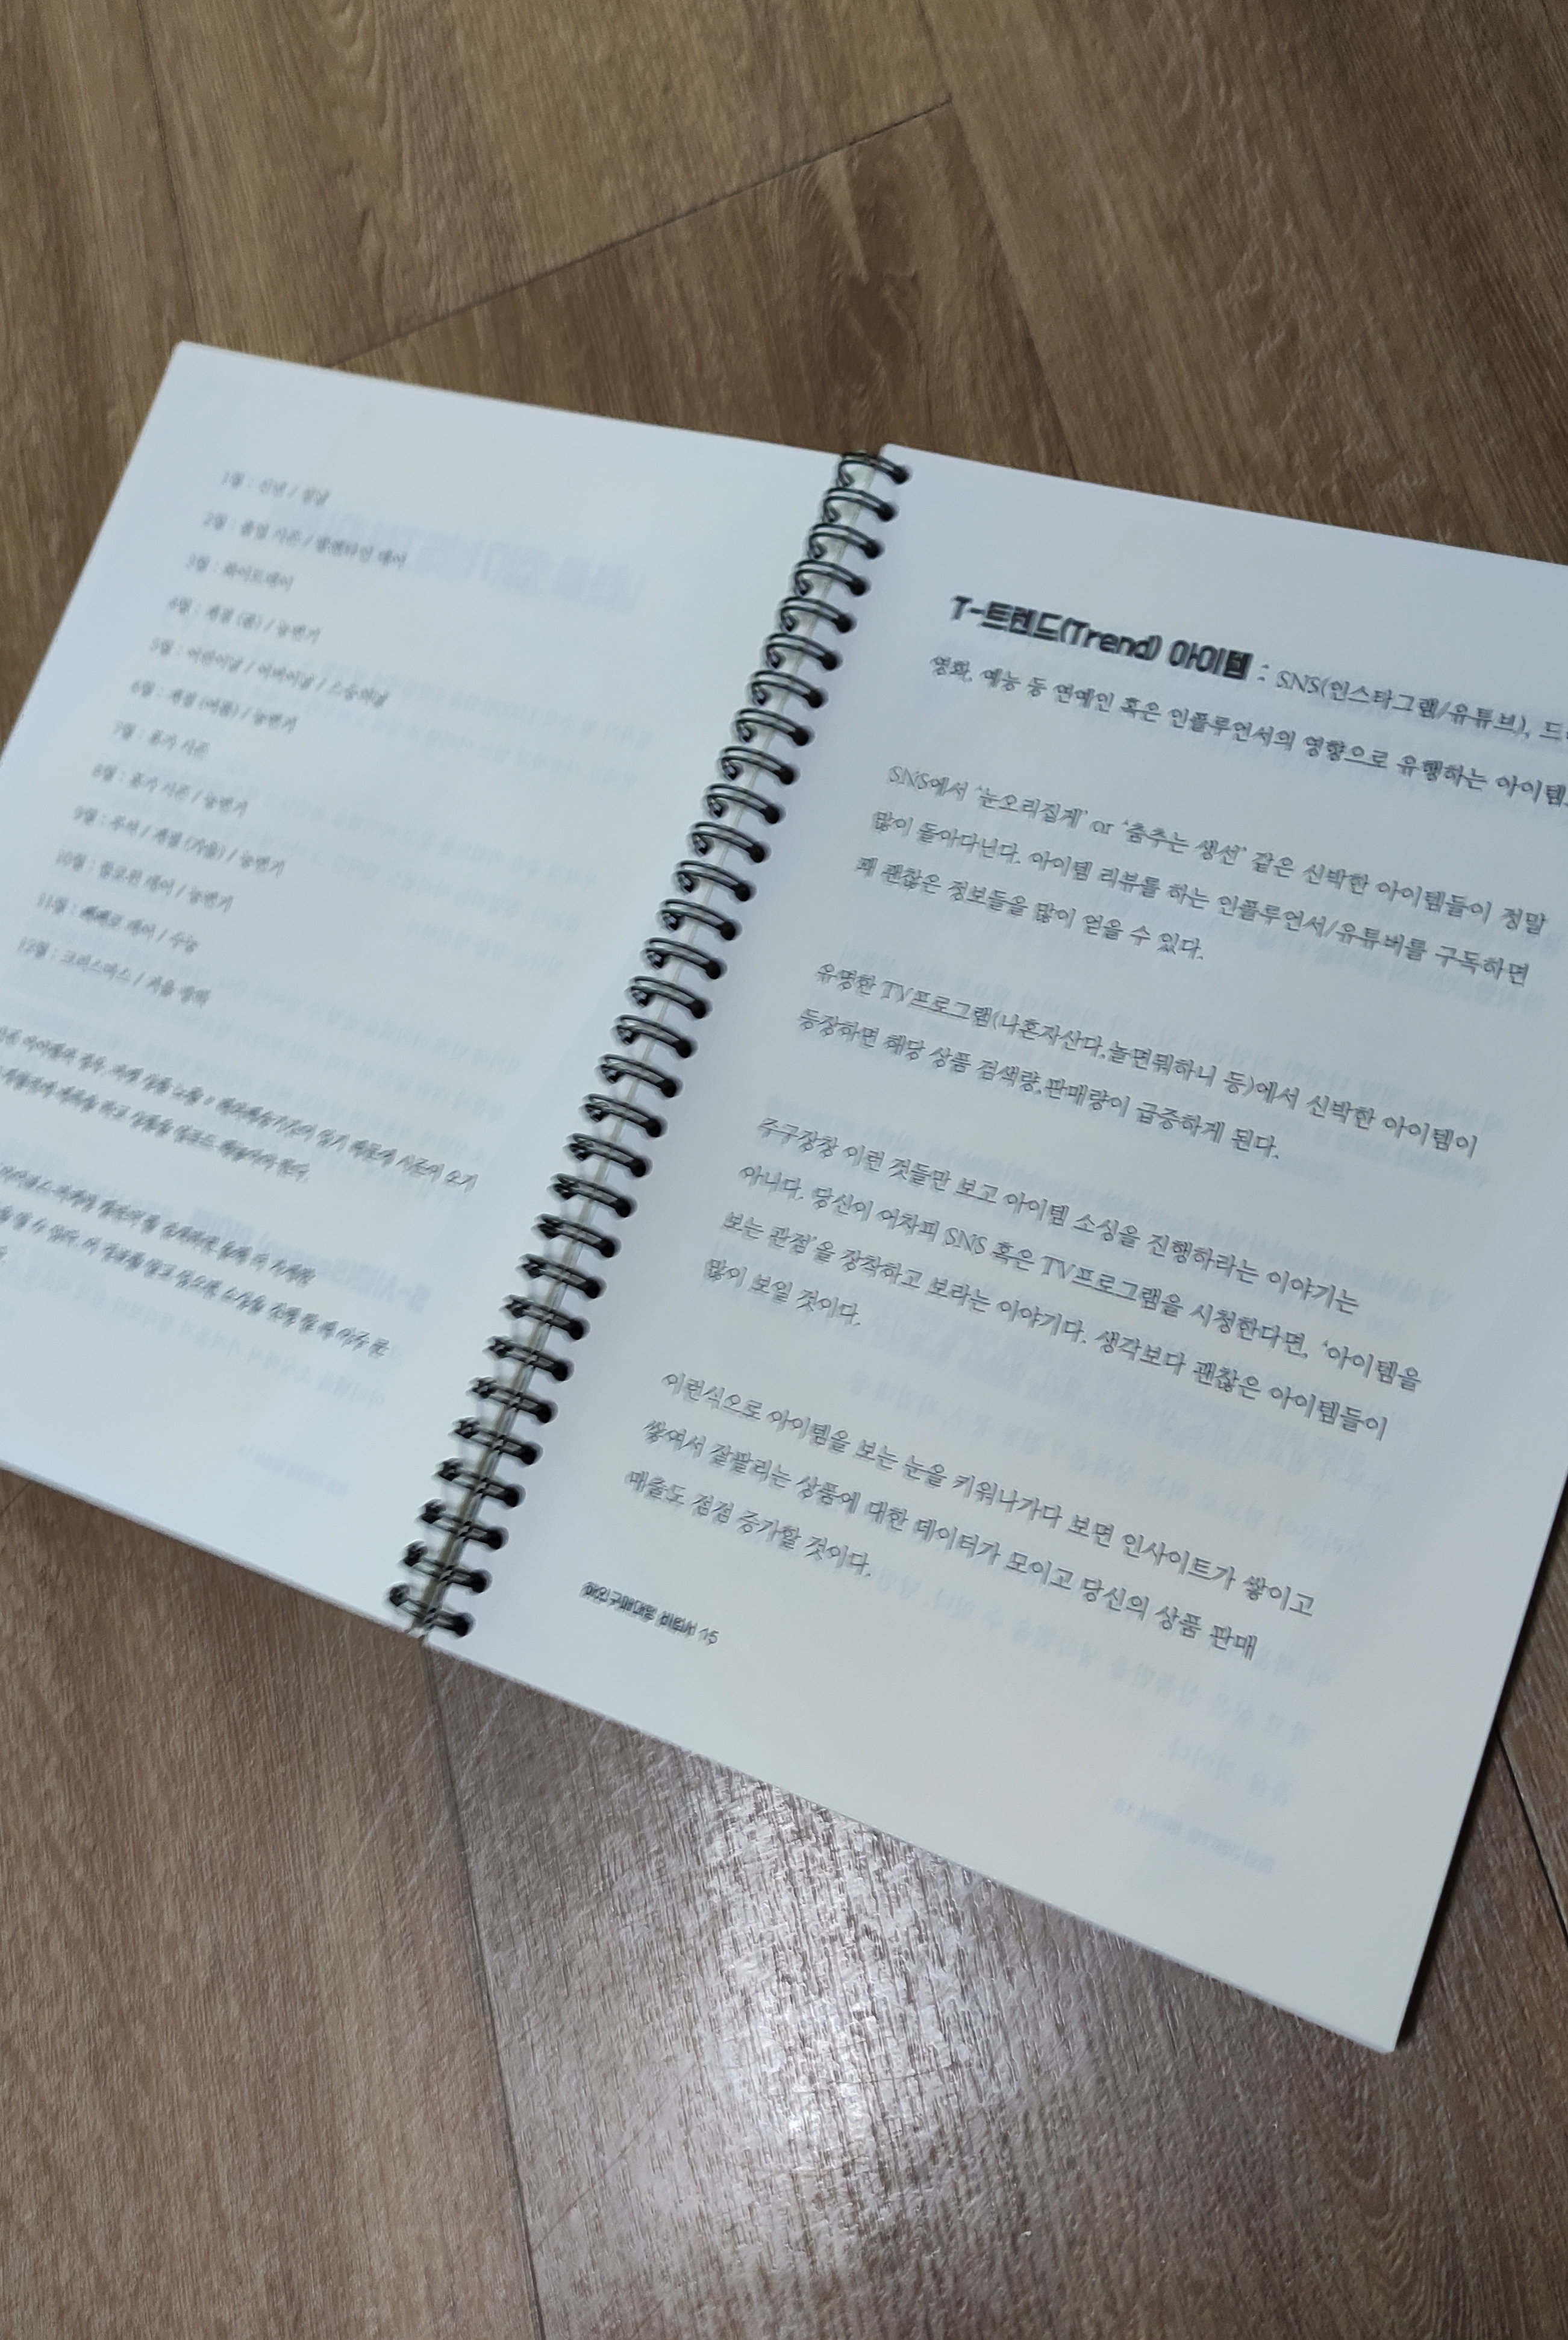 1월 : 신년 / 설날
2월 : 졸업 시즌 / 발렌타인 데이
3월 : 화이트데이
4월 : 계절 (봄) / 농번기
5월 : 어린이날 / 어버이날 / 스승의날
6월 : 계절 (여름) / 농번기
7월 : 휴가 시즌
8월 : 휴가 시즌 / 농번기
9월 : 추석 / 계절 (가을) / 농번기
10월 : 할로윈 데이 / 농번기
11월 : 빼빼로 데이 / 수능
12월 : 크리스마스 / 겨울 방학
T-트렌드(Trend) 아이템 : SNS(인스타그램/유튜브), 드
영화, 예능 등 연예인 혹은 인플루언서의 영향으로 유행하는 아이템
SNS에서 '눈오리집게' or '춤추는 생선' 같은 신박한 아이템들이 정말
많이 돌아다닌다. 아이템 리뷰를 하는 인플루언서/유튜버를 구독하면
꽤 괜찮은 정보들을 많이 얻을 수 있다.
유명한 TV프로그램(나혼자산다,놀면뭐하니 등)에서 신박한 아이템이
등장하면 해당 상품 검색량,판매량이 급증하게 된다.
주구장창 이런 것들만 보고 아이템 소싱을 진행하라는 이야기는
아니다. 당신이 어차피 SNS 혹은 TV프로그램을 시청한다면, '아이템을
보는 관점'을 장착하고 보라는 이야기다. 생각보다 괜찮은 아이템들이
많이 보일 것이다.
이런식으로 아이템을 보는 눈을 키워나가다 보면 인사이트가 쌓이고
쌓여서 잘팔리는 상품에 대한 데이터가 모이고 당신의 상품 판매
매출도 점점 증가할 것이다.
해외구매대행 비법서 15